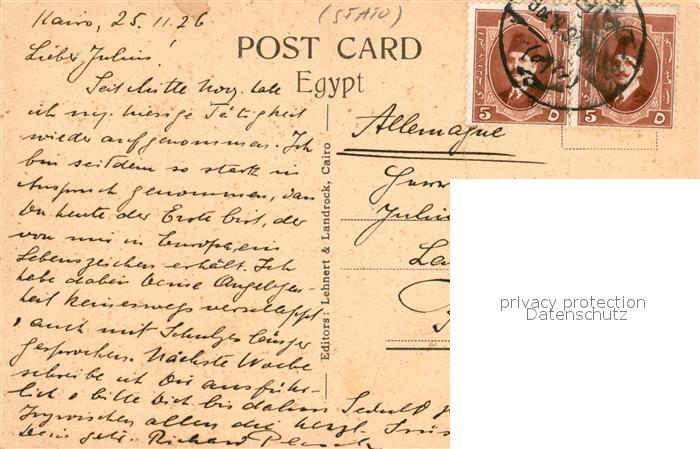 Kairo, 25.11.26
(STAIO)
Lieber Julius!
POST CARD
Egypt
5
5
Seit Mitte Nov. habe
ich m. hiesige Tätigkeit
wieder aufgenommen. Ich
bin seitdem so stark in
Anspruch genommen, dass
Du heute der Erste bist, der
von mir in Europa ein
Lebenszeichen erhält. Ich
habe dabei Deine Angelegen-
heit keineswegs verschleppt
auch mit Schulzes länger
gesprochen. Nächste Woche
schreibe ich Dir ausführ-
lich & bitte Dich bis dahin Geduld
Inzwischen allen die herzl.
Dein getr. Richard
Editors: Lehnert & Landrock, Cairo
Allemagne
Herrn
Julius
privacy protection
Datenschutz